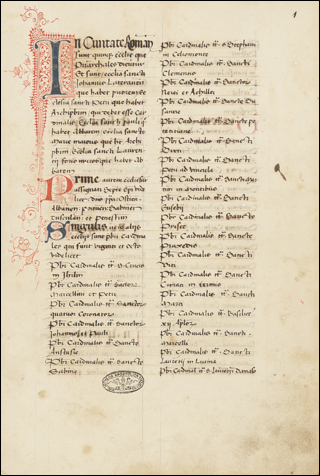 In Civitate Roman
sunt quinqz ecclie que
Patriarchales dicuntur
Et sunt ecclia sancti
Johannis Lateranen
que habet priorem Et
ecclia sancti Petri que habet
Archipbrm qui debet esse Car
dinalis Ecclia sancti pauli q
habet Abbatem ecclia sancte
marie maioris que hz Archi
pbrm Ecclia sancti Lauren
tij foris muros que habet Ab
batem
Prime autem ecclesie
assignati Septem Epi vide
licet Ostien
Albanen Sabinen
Tusculan et Penestrin
Singulis
ecclijs sunt pbri Cardina
les qui sunt viginti et octo
videlicet
Pbr Cardinalis tt Sancte Crucis
in Jhrlm
Pbr Cardinalis sanctor
Marcellini et Petri
Pbr Cardinalis Sanctor
quatuor Coronator
Pbr Cardinalis tt Sanctor
Johannis et Pauli
Pbr Cardinalis tt Sancte
Anstasie
Pbr Cardinalis tt Sancte
Sabine
1
Pbr Cardinalis tt S Stephani
in Celiomonte
Pbr Cardinalis tt Sancti
Clementis
Pbr Cardinalis tt Sanctor
Nerei et Achillei
Pbr Cardinalis tt Sancte Su
sanne
Pbr Cardinalis tt Sancte po
tentiane
Pbr Cardinalis tt Sancti
Pbr Cardinalis tt Sancti
Petri ad vincula
Pbr Cardinalis tt Sancti
in montibus
Pbr Cardinalis tt Sancti
Eusebij
Pbr Cardinalis tt Sancte
Prisce
Pbr Cardinalis tt Sancte
Praxedis
Pbr Cardinalis tt Sancti
Pbr Cardinalis tt Sancte
Marie in
Pbr Cardinalis tt Sancti
Pbr Cardinalis tt Basilice
xij Aplor
Pbr Cardinalis tt Sancti
Marcelli
Pbr Cardinalis tt Sancti
Laurentij in Lucina
Pbr Cardinal tt S Laurentij Damas